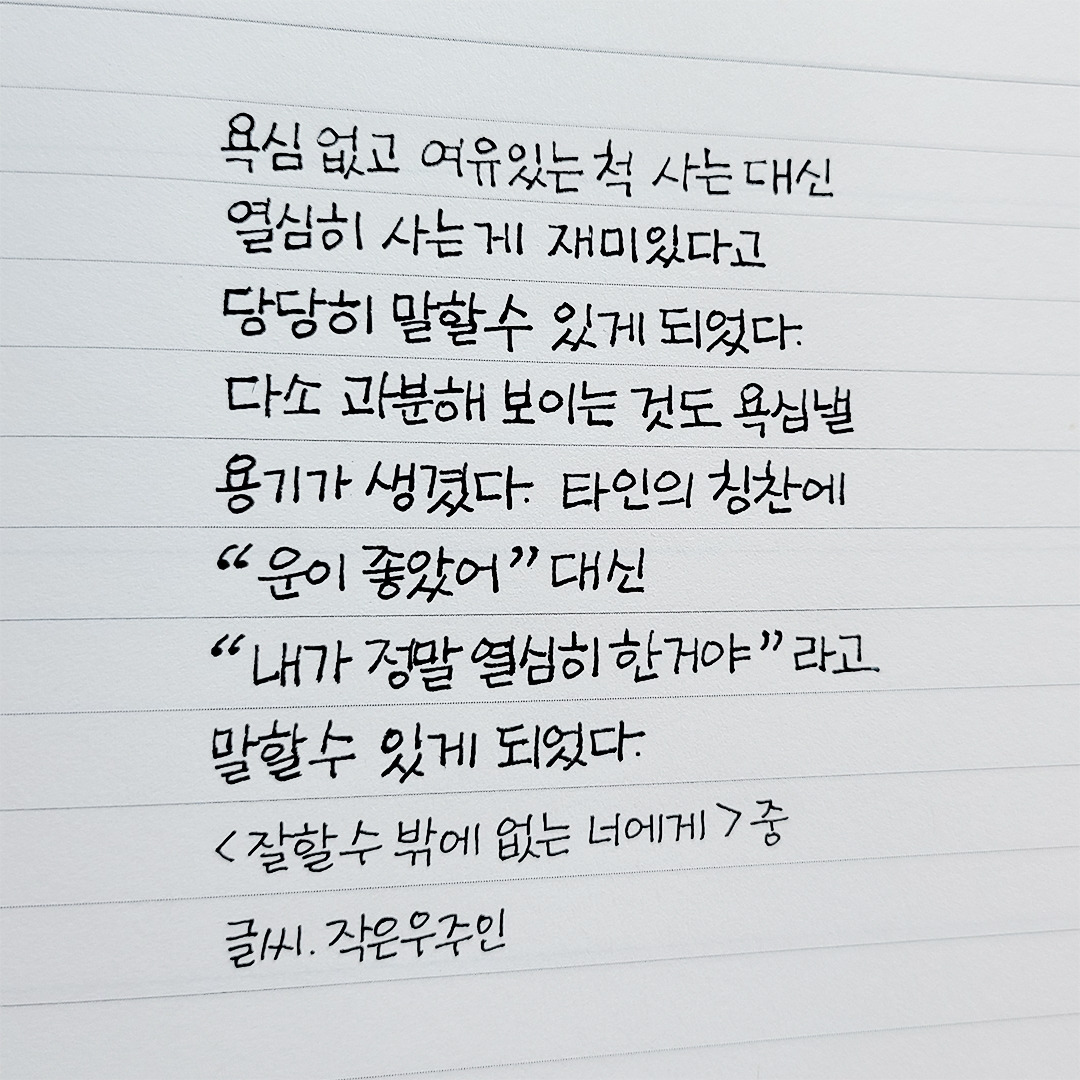 욕심 없고 여유있는 척 사는 대신
열심히 사는게 재미있다고
당당히 말할수 있게 되었다.
다소 과분해 보이는 것도 욕심낼
용기가 생겼다. 타인의 칭찬에
“운이 좋았어” 대신
“내가 정말 열심히 한거야” 라고
말할수 있게 되었다.
<잘할수 밖에 없는 너에게> 중
글씨. 작은우주인